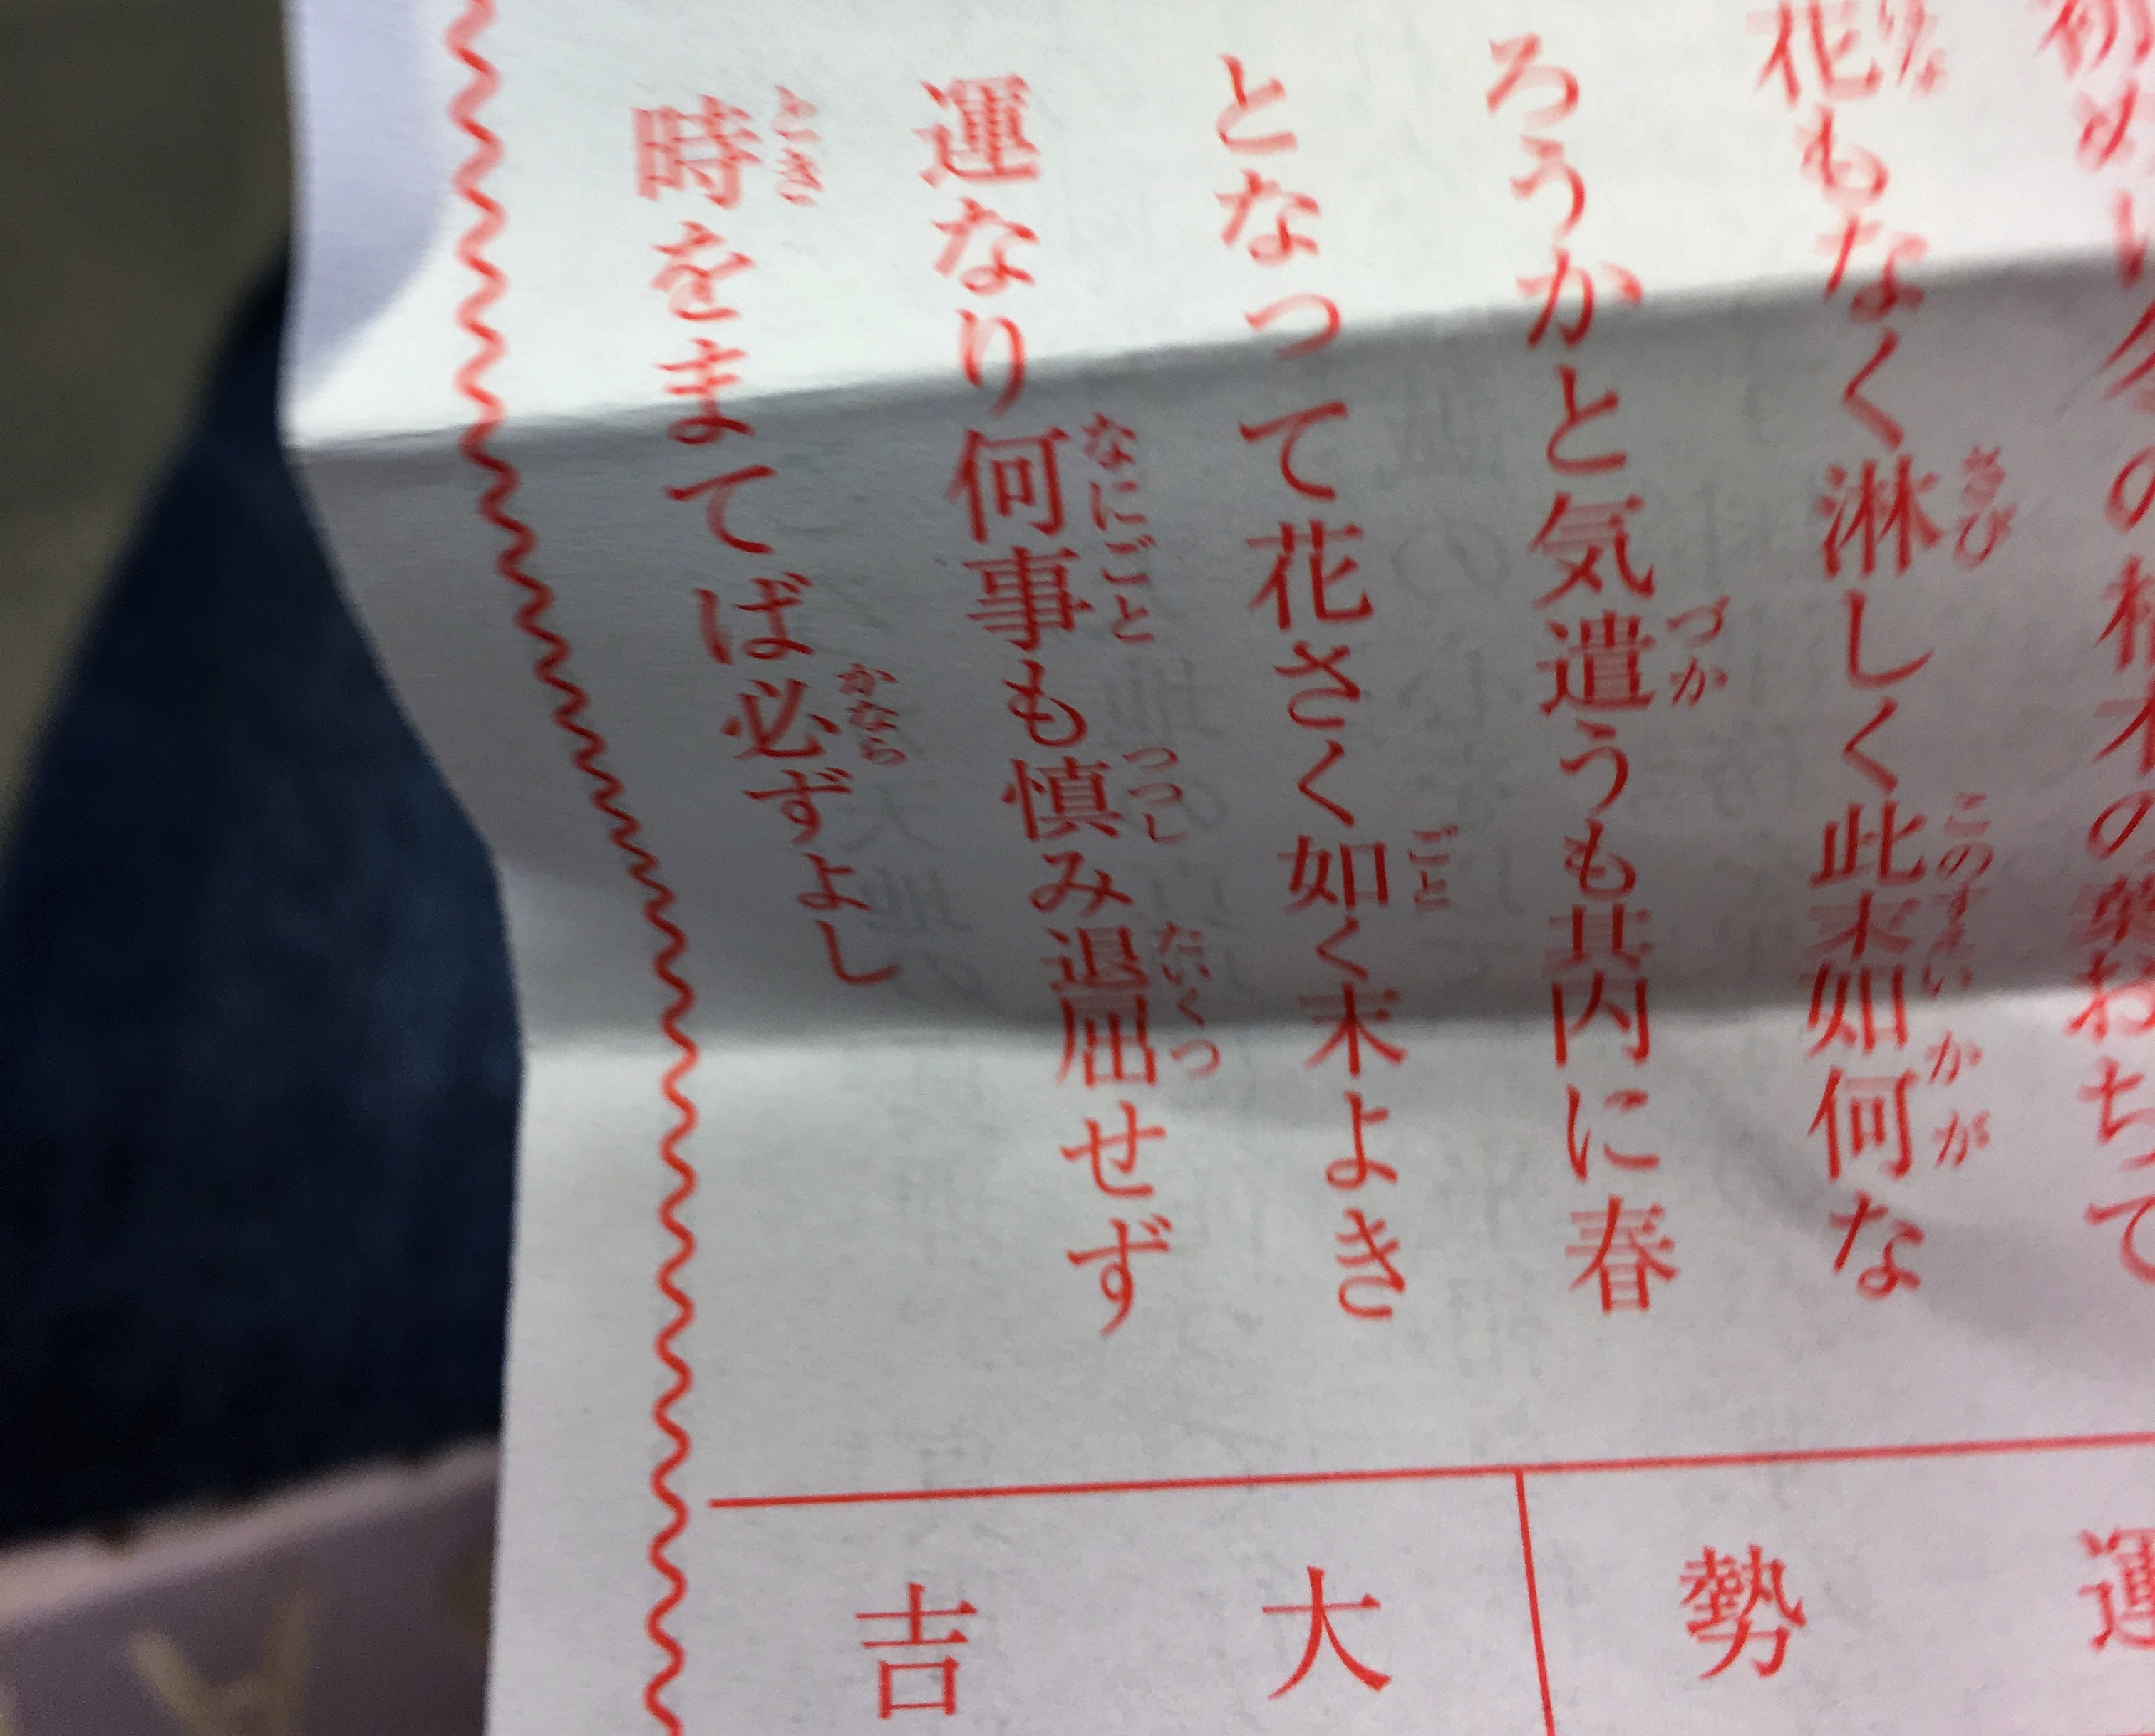 初めは冬の枯木の葉おちて
花もなく淋しく此末如何な
ろうかと気遣うも其内に春
となって花さく如く末よき
運なり何事も慎み退屈せず
時をまてば必ずよし
運勢
大吉